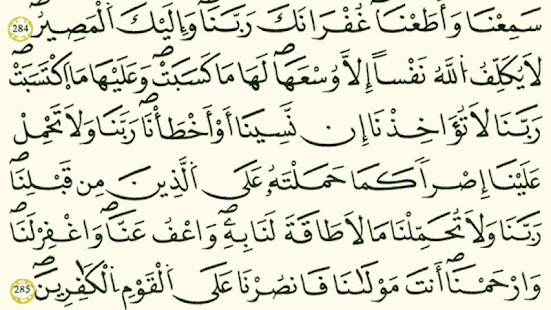 سَمِعْنَا وَأَطَعْنَا غُفْرَانَكَ رَبَّنَا وَإِلَيْكَ الْمَصِيرُ 284
لَا يُكَلِّفُ اللَّهُ نَفْساً إِلَّا وُسْعَهَا لَهَا مَا كَسَبَتْ وَعَلَيْهَا مَا اكْتَسَبَتْ
رَبَّنَا لَا تُؤَاخِذْنَا إِن نَّسِينَا أَوْ أَخْطَأْنَا رَبَّنَا وَلَا تَحْمِلْ
عَلَيْنَا إِصْراً كَمَا حَمَلْتَهُ عَلَى الَّذِينَ مِن قَبْلِنَا
رَبَّنَا وَلَا تُحَمِّلْنَا مَا لَا طَاقَةَ لَنَا بِهِ وَاعْفُ عَنَّا وَاغْفِرْ لَنَا
وَارْحَمْنَا أَنتَ مَوْلَانَا فَانصُرْنَا عَلَى الْقَوْمِ الْكَافِرِينَ 285